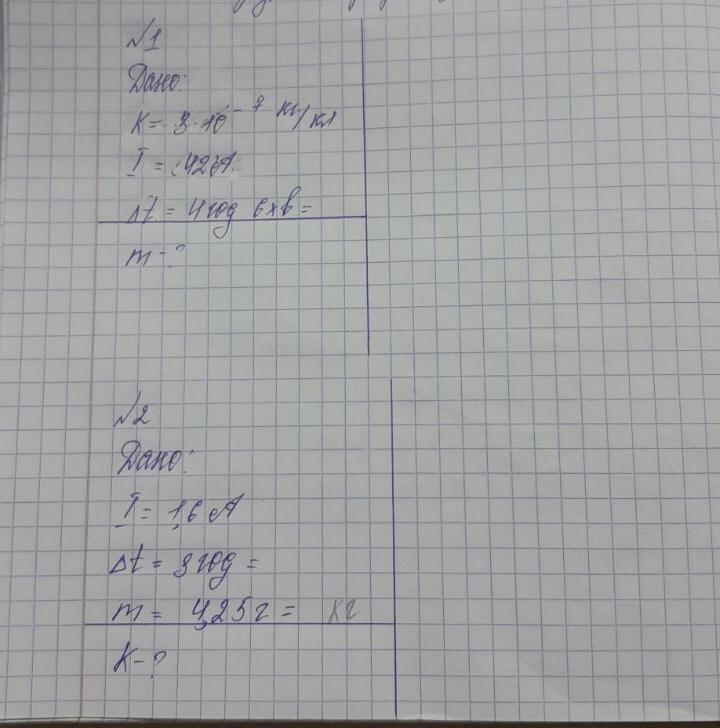 №1
Дано:
K = 3·10⁻⁷ кг/кл
I = 42A
Δt = 4 год 6 хв =
m - ?
№2
Дано:
I = 1,6 A
Δt = 3 год =
m = 4,25 г = кг
K - ?